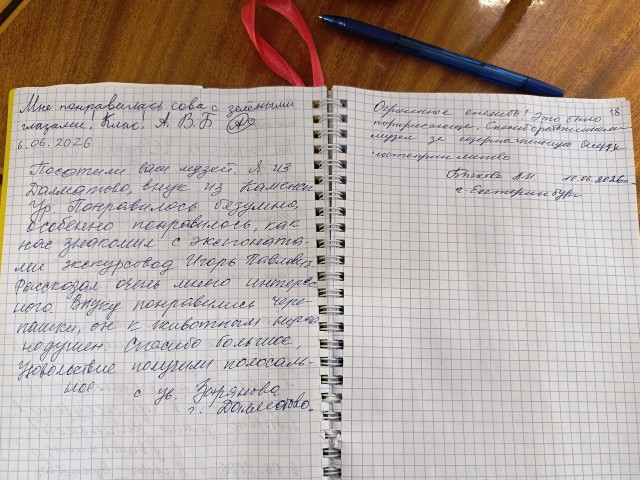 Мне понравилась сова с зелеными
глазами! Класс! А. В. Б
6.06.2026
Посетили ваш музей. Я из
Далматово, внук из Каменск
Ур. Понравилось безумно,
особенно понравилось, как
нас знакомил с экспоната-
ми экскурсовод Игорь Павлович.
Рассказал очень много интерес
ного. Внуку понравились чере-
пашки, он к животным нерав
нодушен. Спасибо большое,
Удовольствие получили колосаль-
ное.
с ув. Зырянова
г. Далматово.
18
Огромное спасибо! Это было
потрясающе. Спасибо работникам
музея за
гостеприимство
А.И. 10.06.2026
г. Екатеринбург